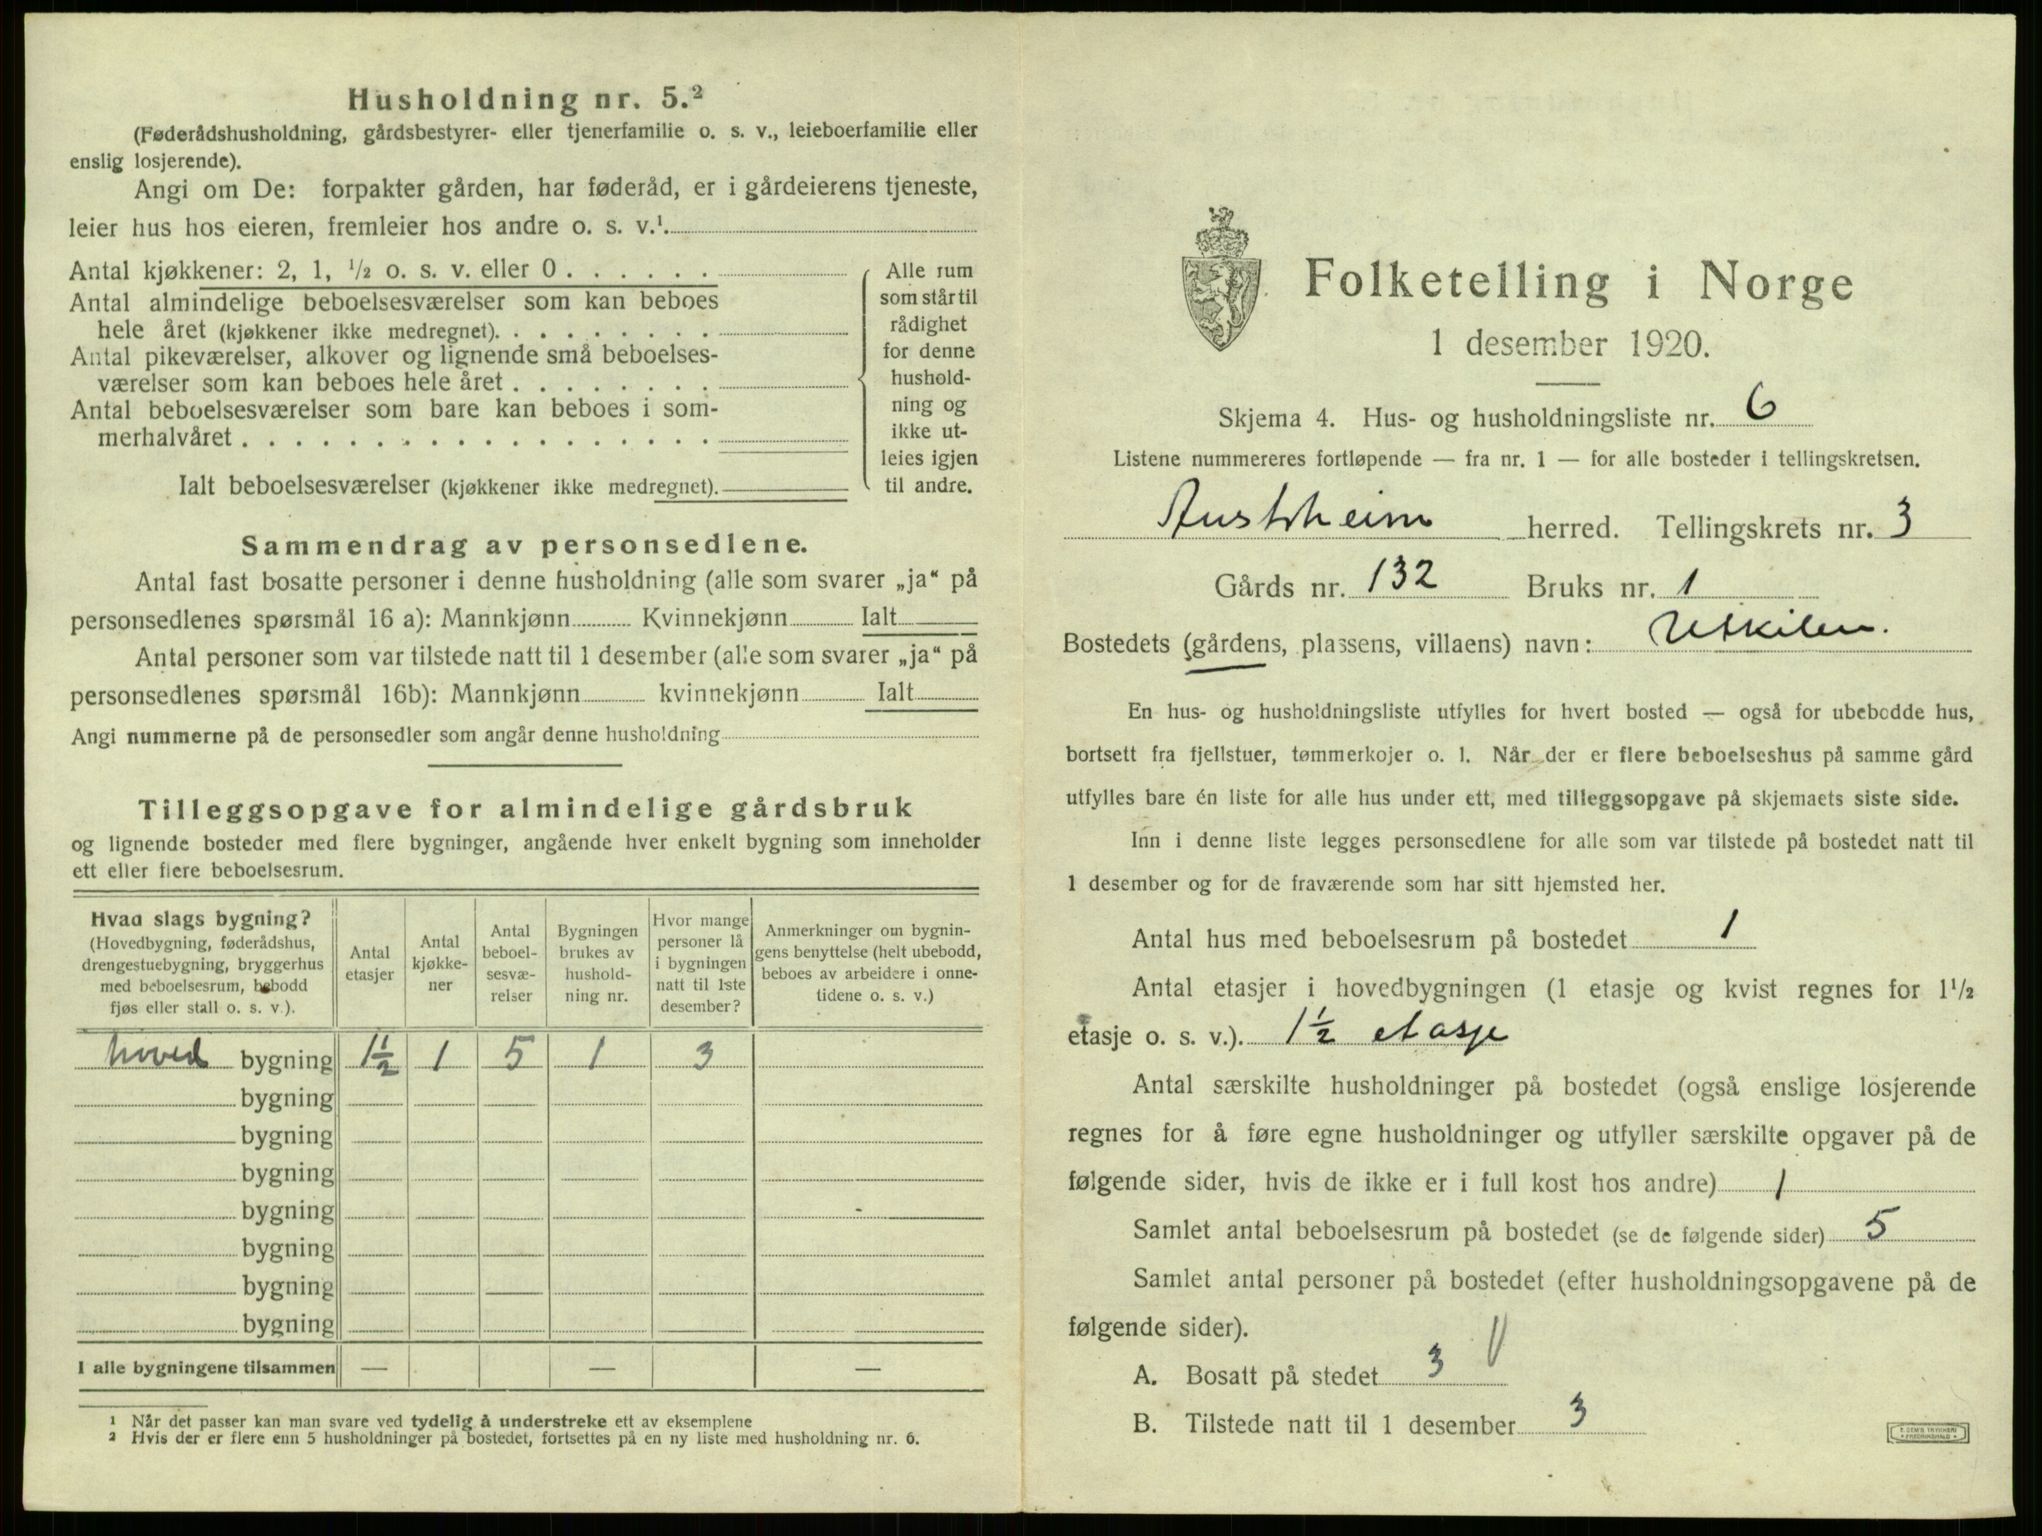 Husholdning nr. 5.²
(Føderådshusholdning, gårdsbestyrer- eller tjenerfamilie o. s. v., leieboerfamilie eller
enslig losjerende).
Angi om De: forpakter gården, har føderåd, er i gårdeierens tjeneste,
leier hus hos eieren, fremleier hos andre o. s. v.¹.
Antal kjøkkener: 2, 1, ½ o. s. v. eller 0 . . . . . .
Antal almindelige beboelsesværelser som kan beboes
hele året (kjøkkener ikke medregnet). . . . . . . . .
Antal pikeværelser, alkover og lignende små beboelses-
værelser som kan beboes hele året . . . . . . . .
Antal beboelsesværelser som bare kan beboes i som-
merhalvåret . . . . . . . . . . . . . . . . . .
Ialt beboelsesværelser (kjøkkener ikke medregnet).
Alle rum
som står til
rådighet
for denne
hushold-
ning og
ikke ut-
leies igjen
til andre.
Sammendrag av personsedlene.
Antal fast bosatte personer i denne husholdning (alle som svarer „ja“ på
personsedlenes spørsmål 16 a): Mannkjønn Kvinnekjønn Ialt
Antal personer som var tilstede natt til 1 desember (alle som svarer „ja“ på
personsedlenes spørsmål 16b): Mannkjønn kvinnekjønn Ialt
Angi nummerne på de personsedler som angår denne husholdning
Tilleggsopgave for almindelige gårdsbruk
og lignende bosteder med flere bygninger, angående hver enkelt bygning som inneholder
ett eller flere beboelsesrum.
Hvad slags bygning?
(Hovedbygning, føderådshus,
drengestuebygning, bryggerhus
med beboelsesrum, bebodd
fjøs eller stall o. s. v.).
Antal
etasjer
Antal
kjøkke-
ner
Antal
beboel-
sesvæ-
relser
Bygningen
brukes av
hushold-
ning nr.
Hvor mange
personer lå
i bygningen
natt til 1ste
desember?
Anmerkninger om bygnin-
gens benyttelse (helt ubebodd,
beboes av arbeidere i onne-
tidene o. s. v.)
hoved bygning 1½ 1 5 1 3
bygning
bygning
bygning
bygning
bygning
bygning
bygning
I alle bygningene tilsammen — — —
¹ Når det passer kan man svare ved tydelig å understreke ett av eksemplene
² Hvis der er flere enn 5 husholdninger på bostedet, fortsettes på en ny liste med husholdning nr. 6.
Folketelling i Norge
1 desember 1920.
Skjema 4. Hus- og husholdningsliste nr. 6
Listene nummereres fortløpende — fra nr. 1 — for alle bosteder i tellingskretsen.
Austrheim herred. Tellingskrets nr. 3
Gårds nr. 132 Bruks nr. 1
Bostedets (gårdens, plassens, villaens) navn: Utkilen.
En hus- og husholdningsliste utfylles for hvert bosted — også for ubebodde hus,
bortsett fra fjellstuer, tømmerkojer o. l. Når der er flere beboelseshus på samme gård
utfylles bare én liste for alle hus under ett, med tilleggsopgave på skjemaets siste side.
Inn i denne liste legges personsedlene for alle som var tilstede på bostedet natt til
1 desember og for de fraværende som har sitt hjemsted her.
Antal hus med beboelsesrum på bostedet 1
Antal etasjer i hovedbygningen (1 etasje og kvist regnes for 1½
etasje o. s. v.). 1½ etasje
Antal særskilte husholdninger på bostedet (også enslige losjerende
regnes for å føre egne husholdninger og utfyller særskilte opgaver på de
følgende sider, hvis de ikke er i full kost hos andre) 1
Samlet antal beboelsesrum på bostedet (se de følgende sider) 5
Samlet antal personer på bostedet (efter husholdningsopgavene på de
følgende sider).
A. Bosatt på stedet 3
B. Tilstede natt til 1 desember 3